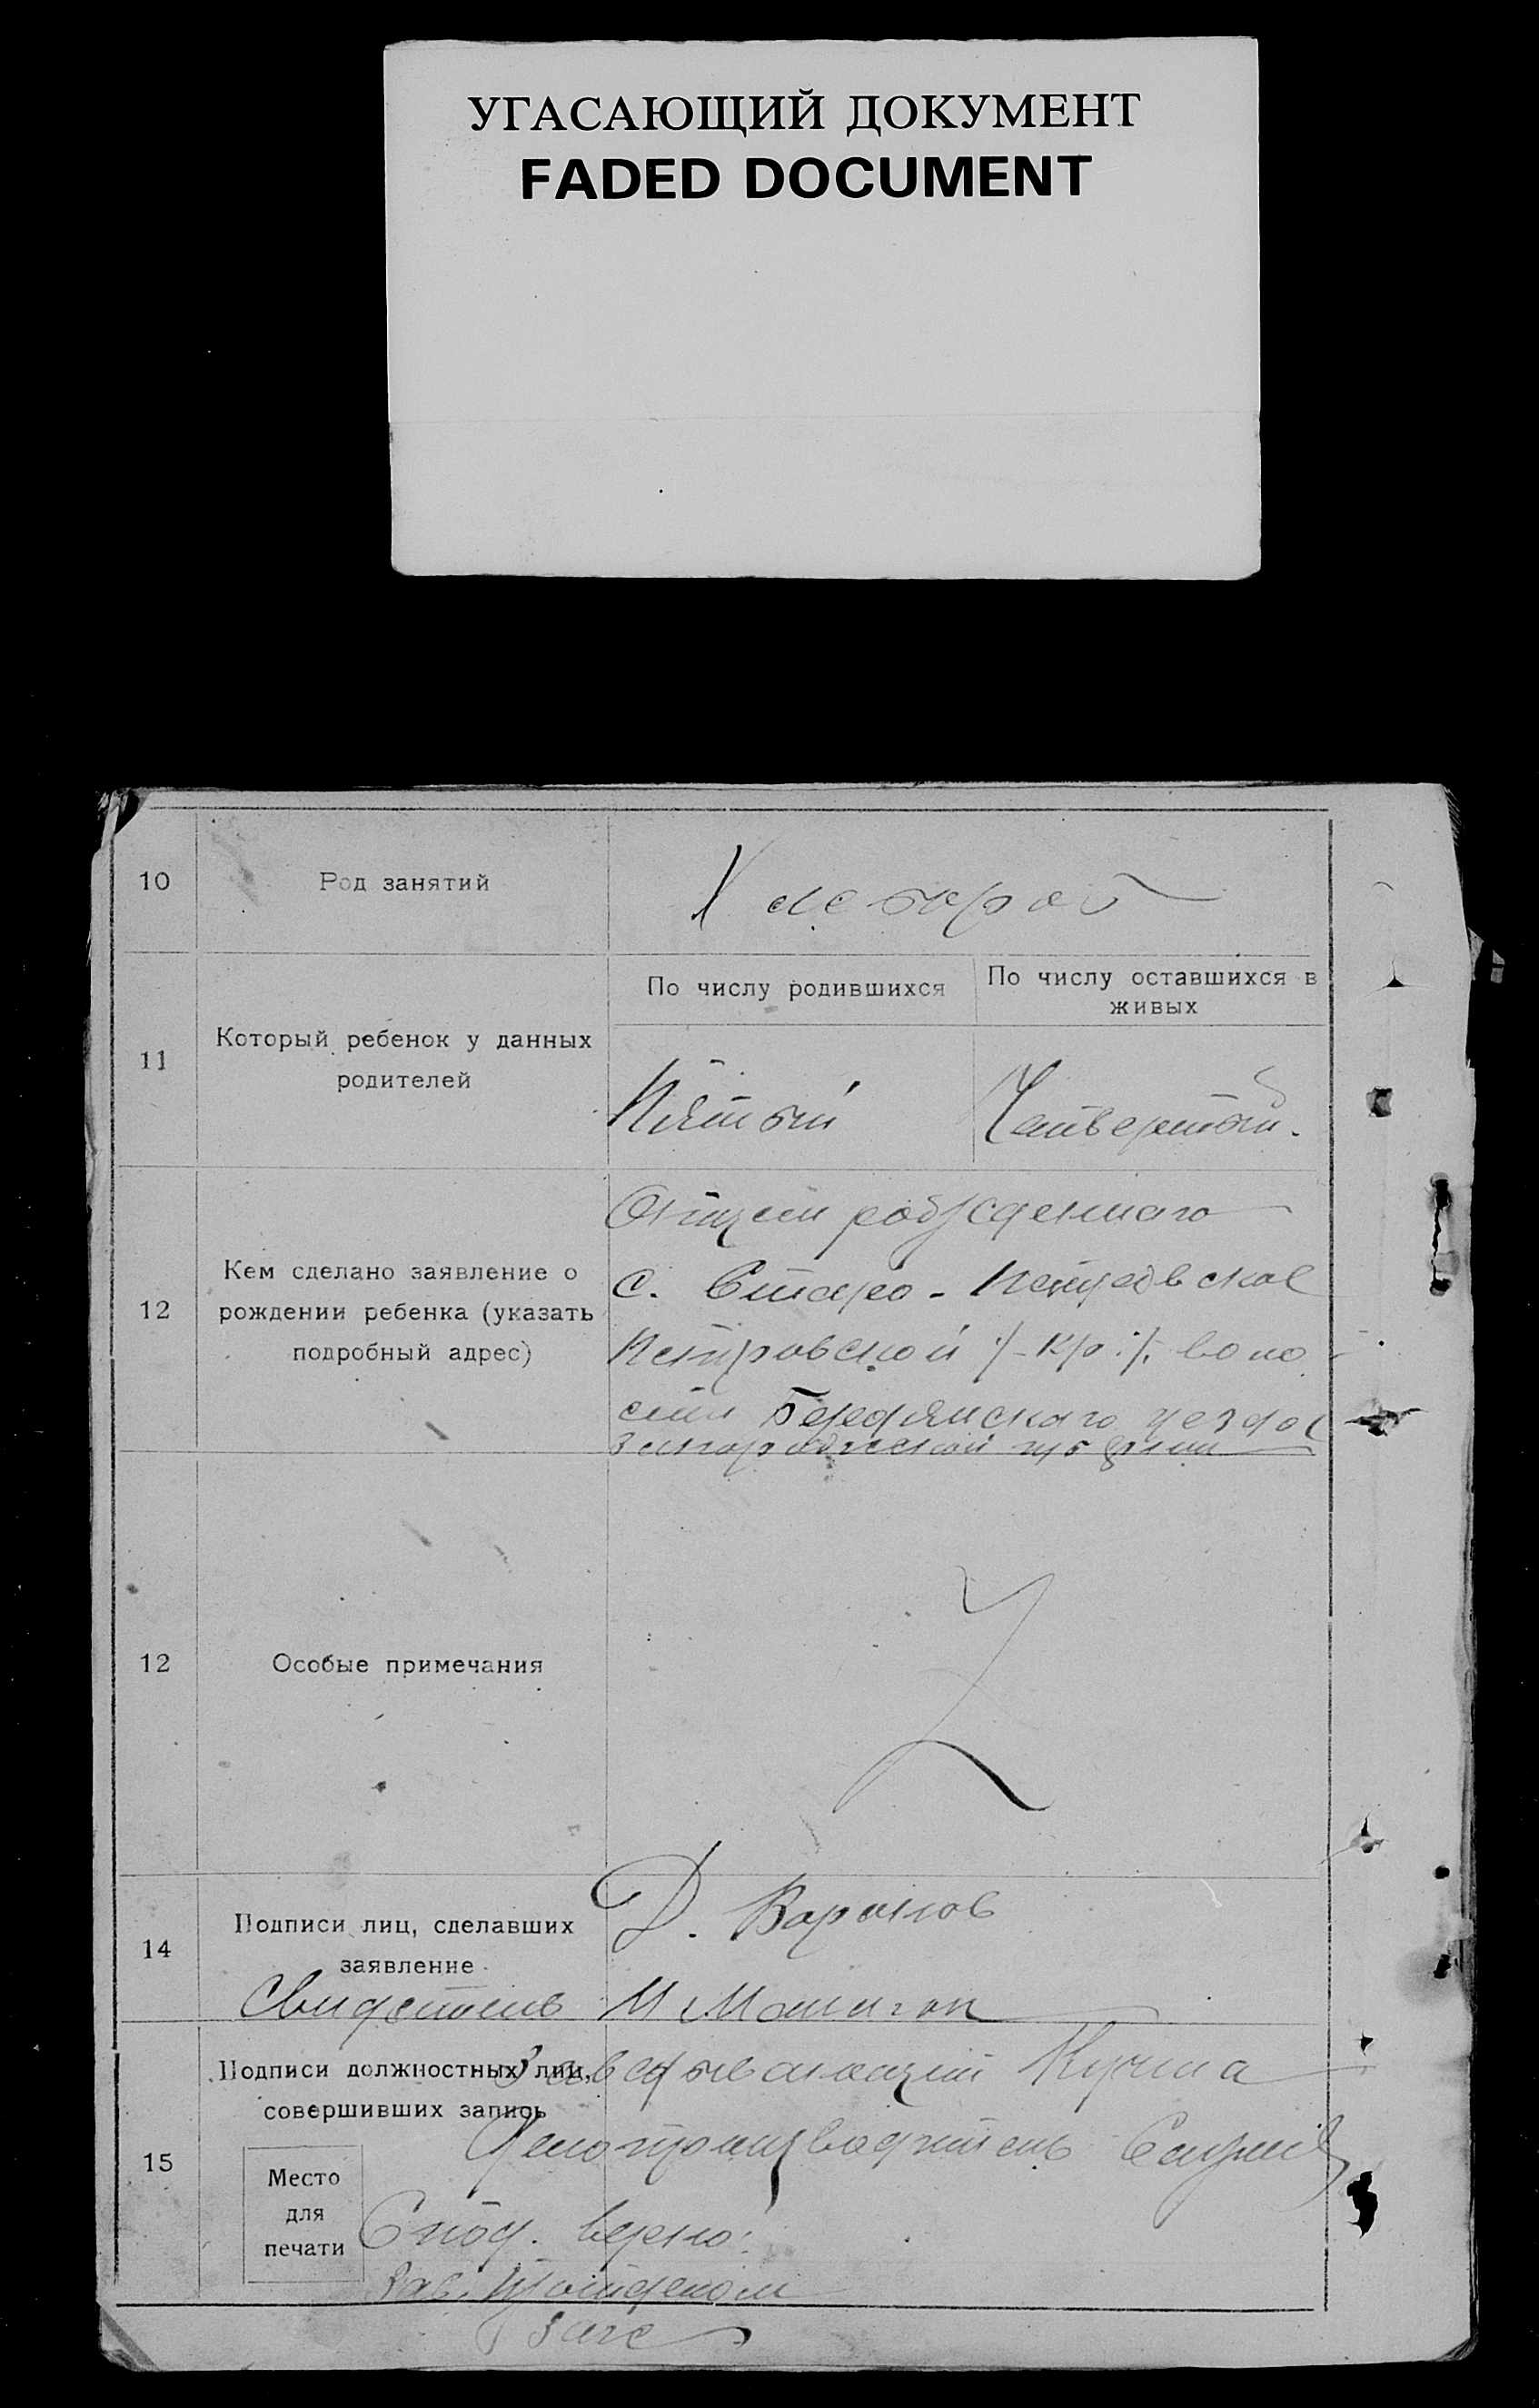 УГАСАЮЩИЙ ДОКУМЕНТ
FADED DOCUMENT
10
Род занятий
Хлебороб
11
Который ребенок у данных
родителей
По числу родившихся
По числу оставшихся в
живых
Пятый
Четвертый.
12
Кем сделано заявление о
рождении ребенка (указать
подробный адрес)
Отцем рожденнаго
с. Старо-Петровское
Петровской /-кр:/. воло
сти Бердянскаго уезда
Запорожской губернии
12
Особые примечания
14
Подписи лиц, сделавших
заявление
Д. Воронов
Свидетель И
15
Подписи должностных лиц,
совершивших запись
Заведывающий Кучма
Делопроизводитель
Место
для
печати
С под. верно:
Зав.
Загс